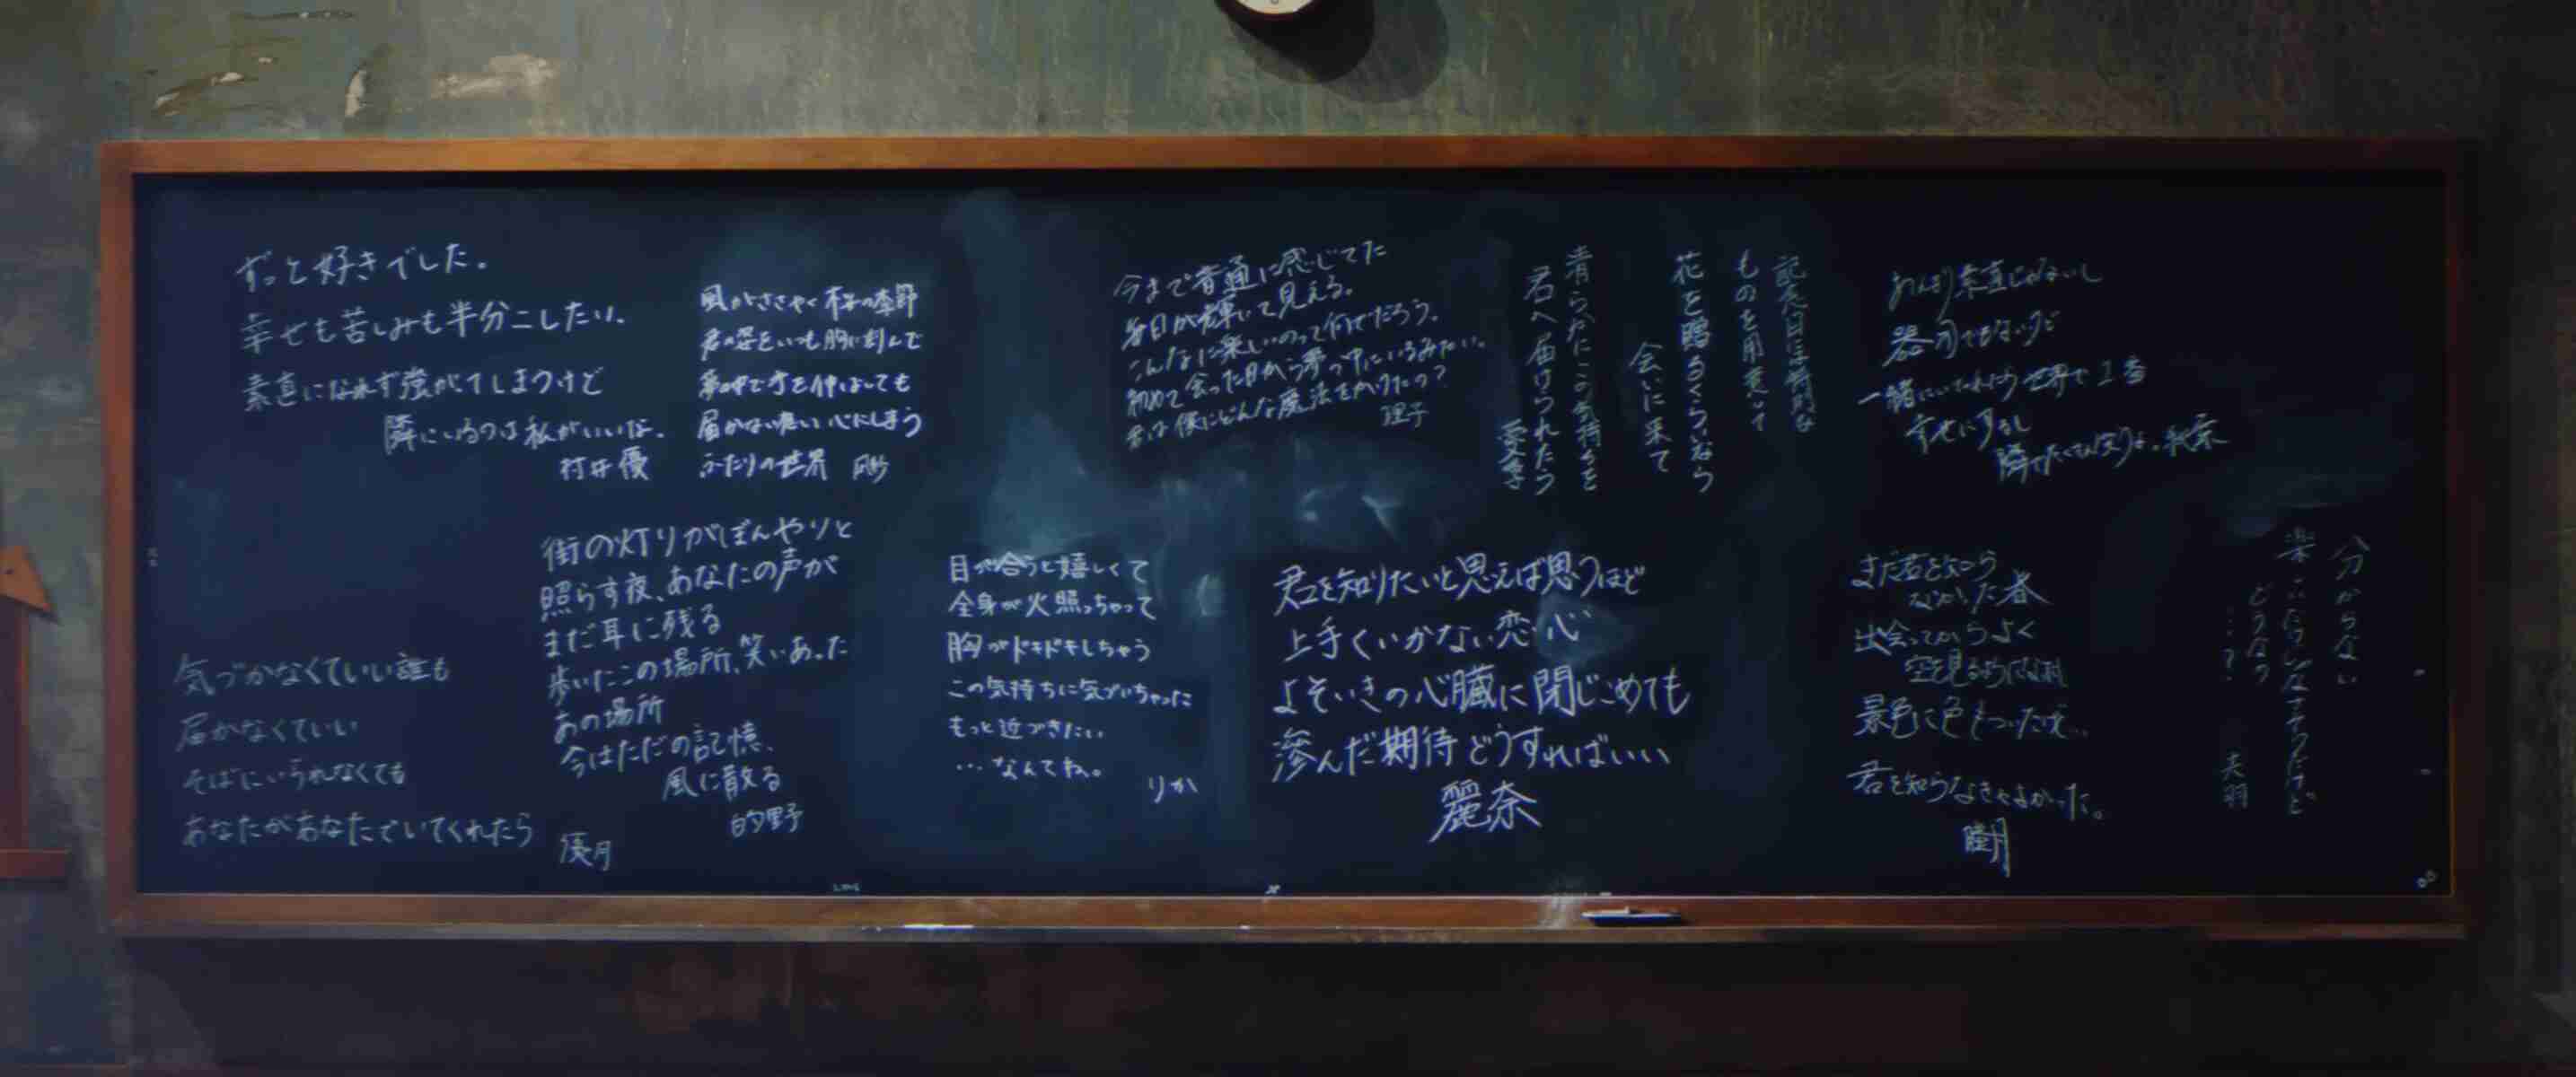 ずっと好きでした。
幸せも苦しみも半分こしたい。
素直になれず強がてしまうけど
隣にいるのは私がいいな。
村井優
風がささやく桜の季節
君の姿をいつも胸に刻んで
夢の中で手を伸ばしても
届かない想い心にしまう
ふたりの世界
街の灯りがぼんやりと
照らす夜、あなたの声が
まだ耳に残る
歩いたこの場所、笑いあった
あの場所
今はただの記憶、
風に散る
的野
気づかなくていい誰も
届かなくていい
そばにいられなくても
あなたがあなたでいてくれたら
優月
今まで普通に感じてた
毎日が輝いて見える。
こんなに楽しいのって何でだろう。
初めて会った日から夢の中にいるみたい。
君は僕にどんな魔法をかけたの?
理子
目が合うと嬉しくて
全身が火照っちゃって
胸がドキドキしちゃう
この気持ちに気づいちゃった
もっと近づきたい
…なんてね。
りか
君を知りたいと思えば思うほど
上手くいかない恋心
よそいきの心臓に閉じこめても
滲んだ期待どうすればいい
麗奈
記念日には特別な
ものを用意して
花を贈るくらいなら
会いに来て
清らかにこの気持ちを
君へ届けられたら
愛季
あんまり素直じゃないし
器用でもないけど
一緒にいてくれたら世界で1番
幸せにするし
まだ君を知ら
なかった春
出会ってからよく
空を見るようになれ
景色に色もついたさえ…
君を知らなきゃよかった。
瞳月
分からない
どうなう
…?